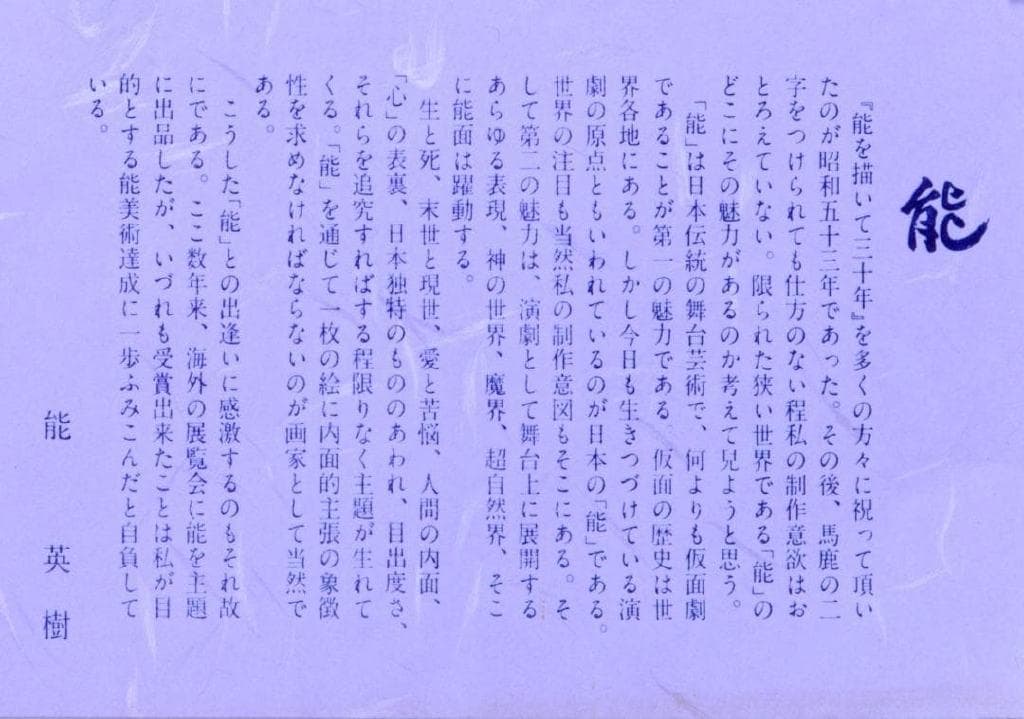 能
『能を描いて三十年』を多くの方々に祝って頂い
たのが昭和五十三年であった。その後、馬鹿の二
字をつけられても仕方のない程私の制作意欲はお
とろえていない。限られた狭い世界である「能」の
どこにその魅力があるのか考えて見ようと思う。
「能」は日本伝統の舞台芸術で、何よりも仮面劇
であることが第一の魅力である。仮面の歴史は世
界各地にある。しかし今日も生きつづけている演
劇の原点ともいわれているのが日本の「能」である。
世界の注目も当然私の制作意図もそこにある。そ
して第二の魅力は、演劇として舞台上に展開する
あらゆる表現、神の世界、魔界、超自然界、そこ
に能面は躍動する。
生と死、末世と現世、愛と苦悩、人間の内面、
「心」の表裏、日本独特のもののあわれ、目出度さ、
それらを追究すればする程限りなく主題が生れて
くる。「能」を通じて一枚の絵に内面的主張の象徴
性を求めなければならないのが画家として当然で
ある。
こうした「能」との出逢いに感激するのもそれ故
にである。ここ数年来、海外の展覧会に能を主題
に出品したが、いづれも受賞出来たことは私が目
的とする能美術達成に一歩ふみこんだと自負して
いる。
能 英樹